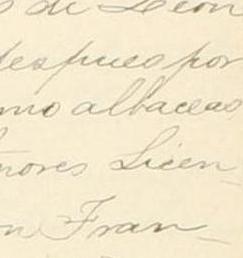 s de Leon
despues por
mo albaceas
ñores Licen-
n Fran-